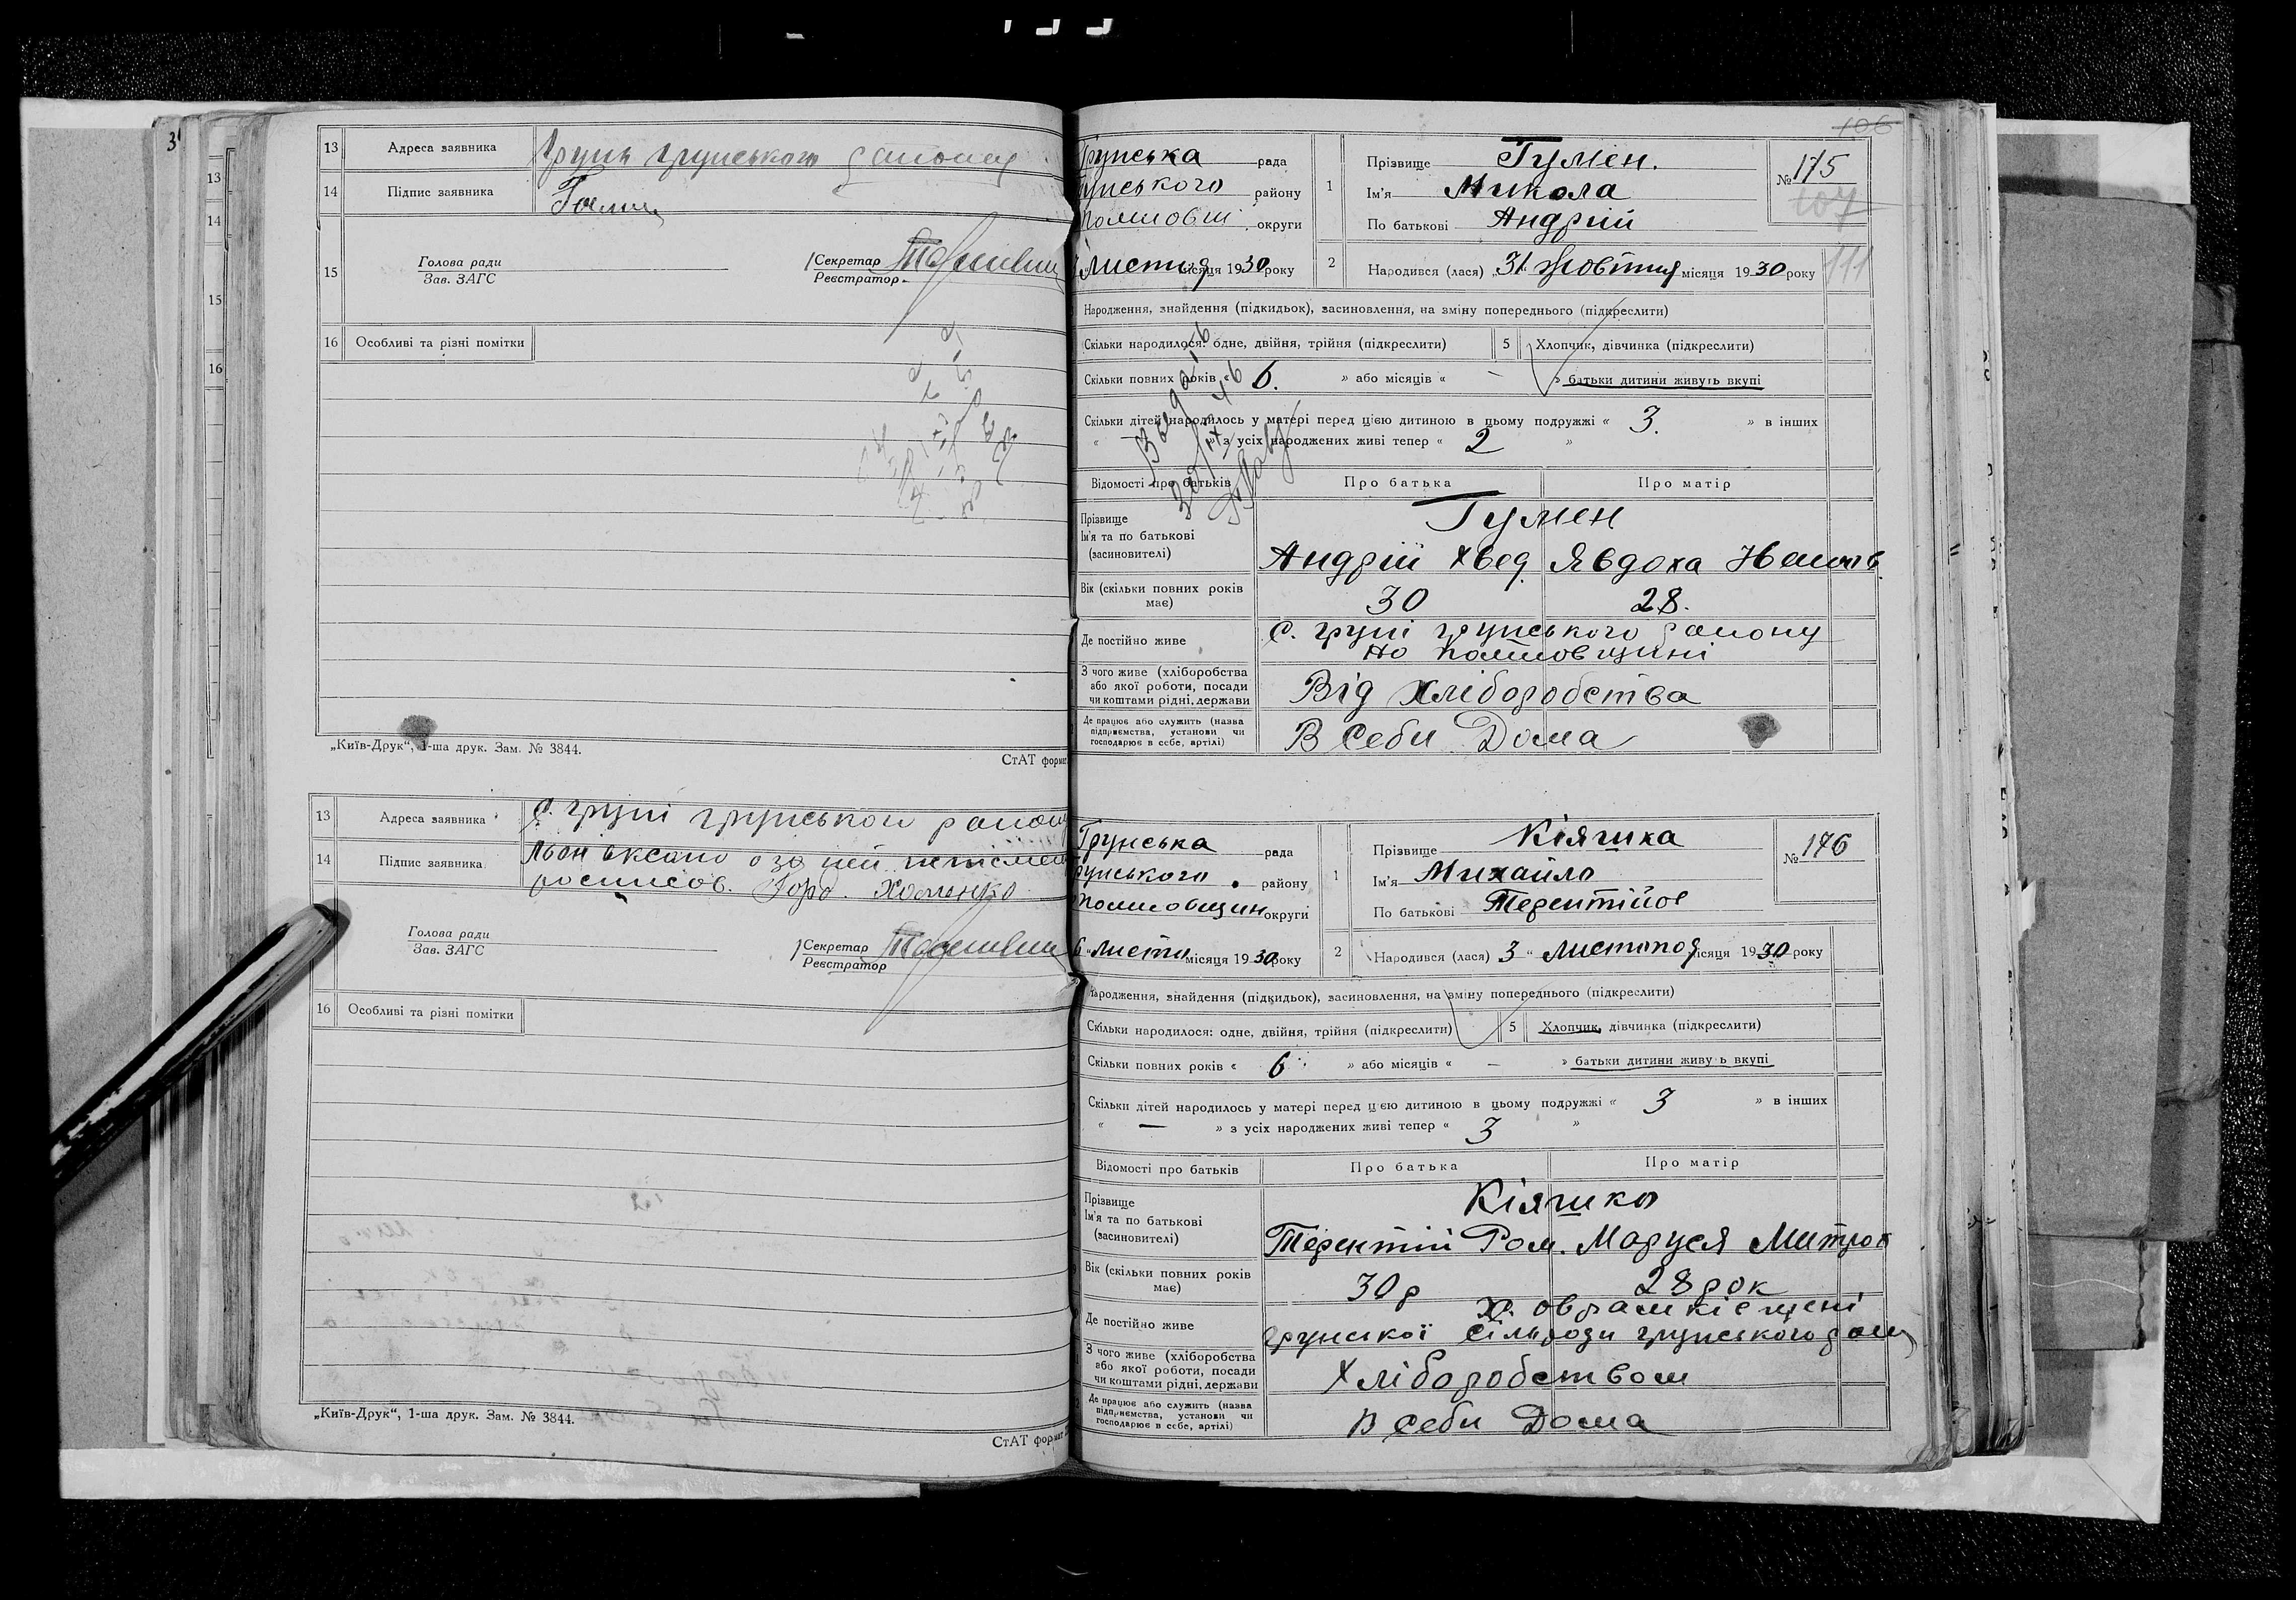 13 Адреса заявника Грунь грунського району
14 Підпис заявника
15 Голова ради
Зав. ЗАГС
Секретар
Реєстратор
16 Особливі та різні помітки
„Київ-Друк“, 1-ша друк. Зам. № 3844.
СтАТ формат
13 Адреса заявника С. груні грунськой району
14 Підпис заявника
Голова ради
Зав. ЗАГС
Секретар
Реєстратор
16 Особливі та різні помітки
„Київ-Друк“, 1-ша друк. Зам. № 3844.
СтАТ формат
106
Грунська рада
округи
району
1 Прізвище Гумен.
Ім'я Микола
По батькові Андрій
№ 175
107
111
Листод місяця 1930 року
2 Народився (лася) „31 жовтня місяця 1930 року
Народження, знайдення (підкидьок), засиновлення, на зміну попереднього (підкреслити)
Скільки народилося: одне, двійня, трійня (підкреслити) 5 Хлопчик, дівчинка (підкреслити)
Скільки повних років « 6. » або місяців « — » батьки дитини живуть вкупі
Скільки дітей народилось у матері перед цією дитиною в цьому подружжі « 3. » в інших
« — » з усіх народжених живі тепер « 2 »
Відомості про батьків Про батька Про матір
Прізвище Гумен
Ім'я та по батькові Андрій Хвед. Явдоха
(засиновителі)
Вік (скільки повних років має) 30 28.
Де постійно живе С. груні грунського району
на полтовщині
З чого живе (хліборобства
або якої роботи, посади
чи коштами рідні, держави Від хліборобства
Де працює або служить (назва
підприємства, установи чи
господарює в себе, артілі) В себи Дома
Грунська рада
грунського району
округи
1 Прізвище Кіяшка
Ім'я Михайло
По батькові Терентійов
№ 176
6 „листо місяця 1930 року
2 Народився (лася) 3 “ листопод місяця 1930 року
Народження, знайдення (підкидьок), засиновлення, на зміну попереднього (підкреслити)
Скільки народилося: одне, двійня, трійня (підкреслити) 5 Хлопчик, дівчинка (підкреслити)
Скільки повних років « 6 » або місяців « — » батьки дитини живуть вкупі
Скільки дітей народилось у матері перед цією дитиною в цьому подружжі « 3 » в інших
« — » з усіх народжених живі тепер « 3 »
Відомості про батьків Про батька Про матір
Прізвище Кіяшко
Ім'я та по батькові Терентій Ром. Маруся Митроп
(засиновителі)
Вік (скільки повних років має) 30 р 28 рок
Де постійно живе
грунської сільроди грунського
З чого живе (хліборобства
або якої роботи, посади
чи коштами рідні, держави Хліборобством
Де працює або служить (назва
підприємства, установи чи
господарює в себе, артілі) В себи Дома